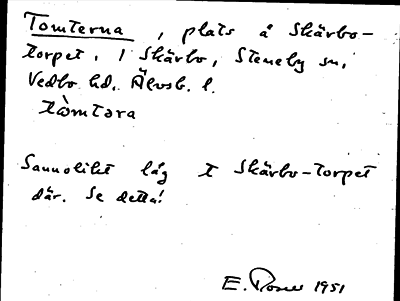 Tomterna, plats å Skärbo-
torpet, i Skärbo, Steneby sn,
Vedbo hd. Älvsb. l.
tòmtara
Sannolikt låg t Skärbo-torpet
där. Se detta!
E. 1951